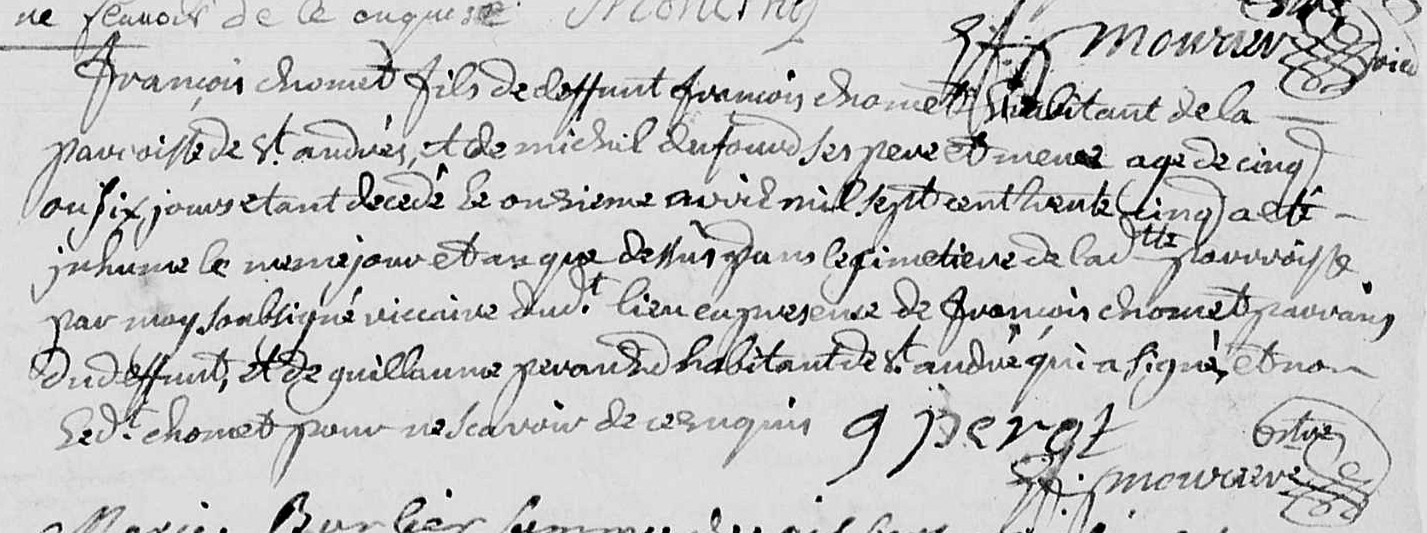 ne scavoir de ce enquis
mourier
françois chomet fils de deffunt françois chomet habitant de la
parroisse de St. andrés, et de michil dufourd ses pere et mere age de cinq
ou six jours etant decedé le onsieme avvril mil sept cent trente (cinq) a eté
inhume le meme jour et an que dessus dans le cimetiere de lad.tte parroisse
par moy soubsigné viccaire dud.t lieu en presence de françois chomet parrains
dud deffunt, et de guillaume perand habitant de St. andré qui a signé, et non
led.t chomet pour ne scavoir de ce enquis g perat
mourier
Marie Burlier femme